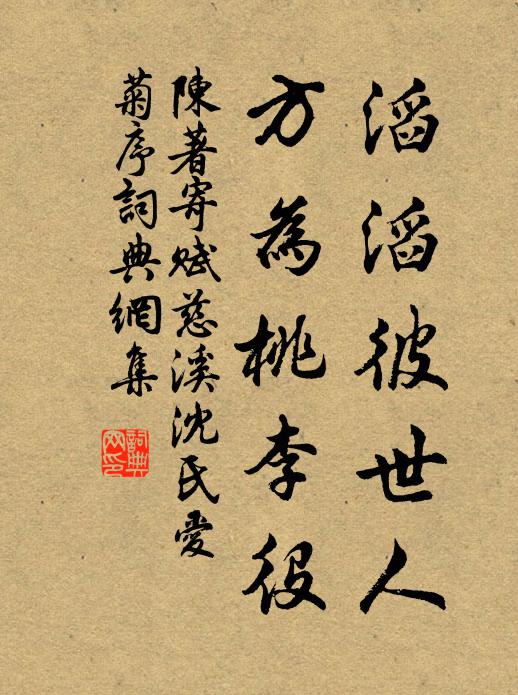 滔滔彼世人
方為桃李役
陳著寄賦慈溪沈氏愛
菊序詞典網集
詞典
网印